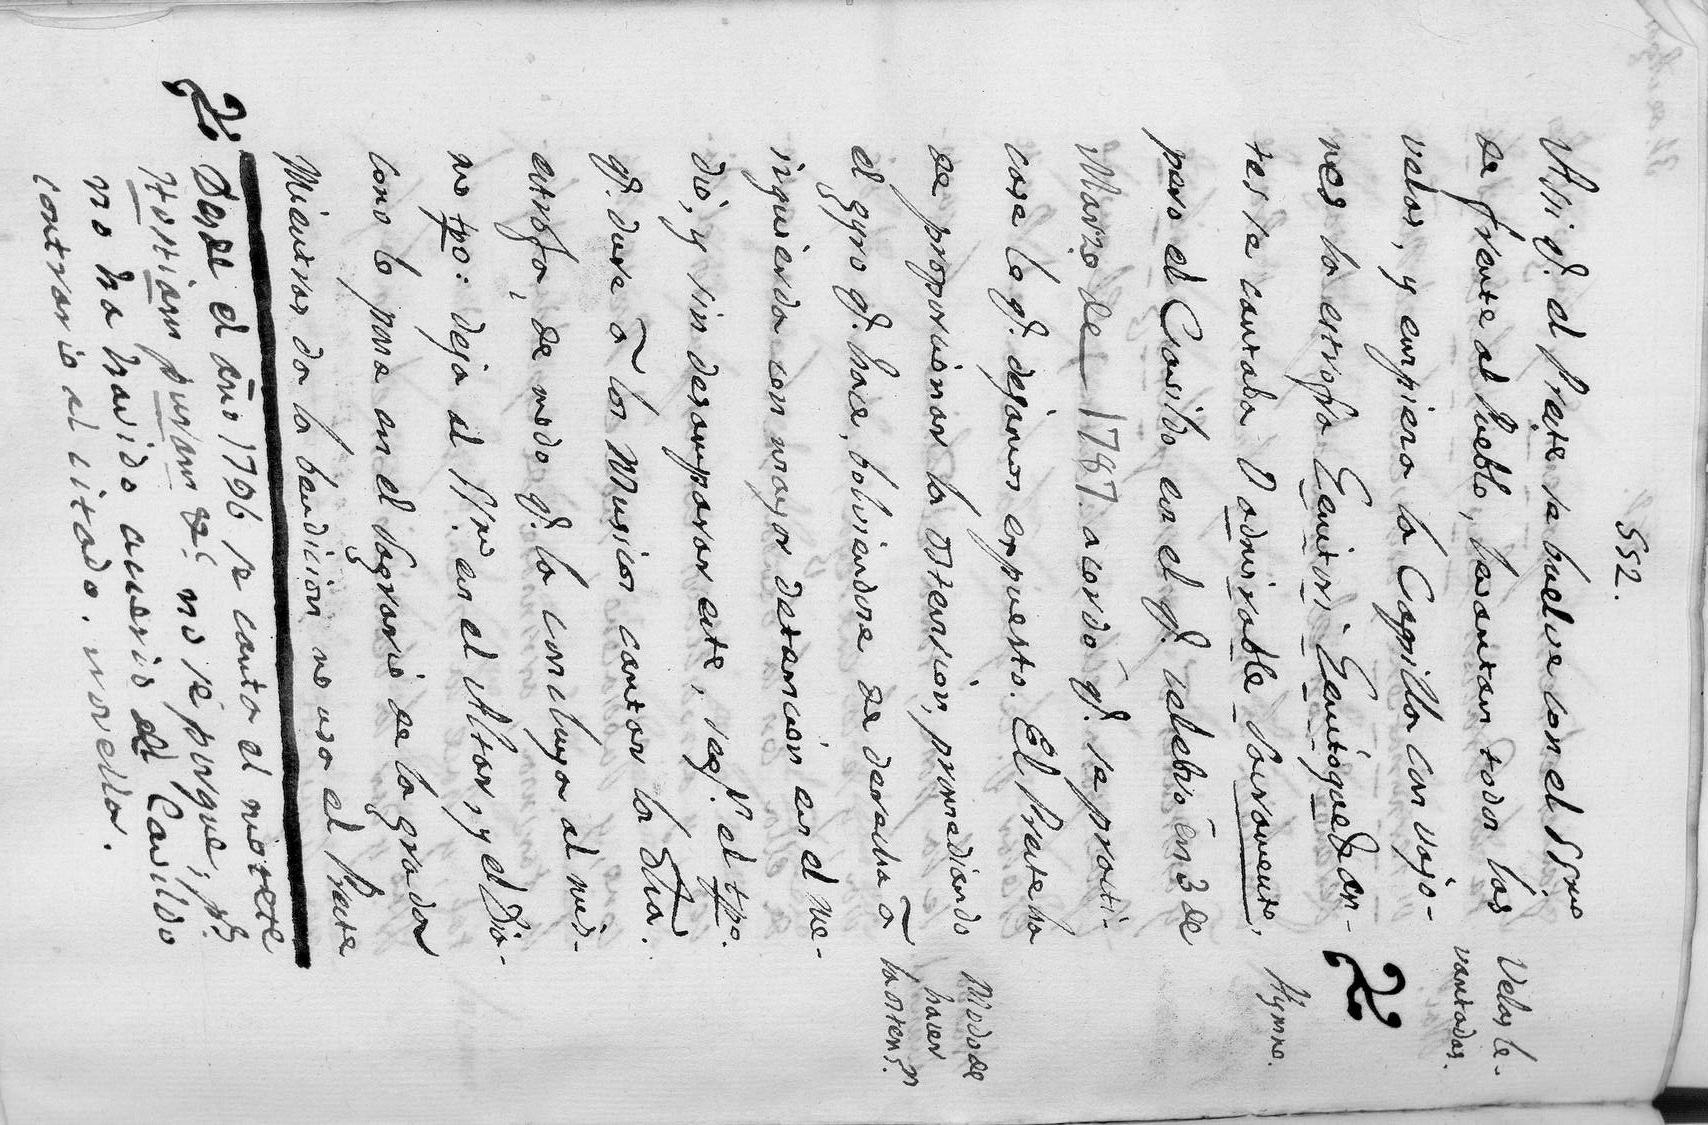 552.
Assi q.e el Preste se buelve con el SSmo
de frente al Pueblo, levantan todos las
velas, y empieza la Capilla con vajo-
nes la estrofa Genitori Genitoque &
tes se cantaba O admirable Sacramento,
pero el Cavildo en el q.e celebró en 3 de
Marzo de 1787. acordó q.e se practi-
case lo q.e dejamos expuesto. El Preste ha
de proporcionar la ostension, promediando
el gyro q.e hace, bolviendose de derecha à
izquierda con mayor detencion en el me-
dio, y sin desamparar este, seg.n el tpo.
q.e dure à los Musicos cantar la dha.
estrofa, de modo q.e la concluya al mis-
mo tpo: deja al SSmo en el Altar, y el Dia-
cono lo pone en el Sagrario de las gradas
Mientras da la bendicion no usa el Preste
Velas le-
vantadas.
Hymno.
Modo de
hacer
la osten.n
Desde el año 1796 se canta el motete
Hostiam puram &c no se porque, p.s
no ha havido acuerdo del Cavildo
contrario al citado. novella.